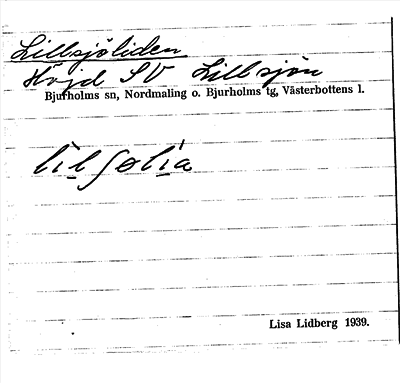 Lillsjöliden
Höjd SV Lillsjön
Bjurholms sn, Nordmaling o. Bjurholms tg, Västerbottens l.
lilʃølia
Lisa Lidberg 1939.